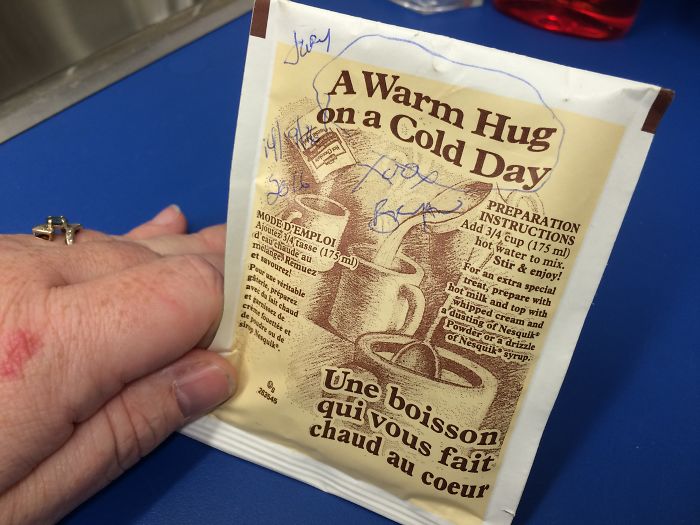 A Warm Hug
on a Cold Day
2016
xoox
PREPARATION
INSTRUCTIONS
Add 3/4 cup (175 ml)
hot water to mix.
Stir & enjoy!
For an extra special
treat, prepare with
hot milk and top with
whipped cream and
a dusting of Nesquik®
Powder or a drizzle
of Nesquik® syrup.
MODE D'EMPLOI
Ajoutez 3/4 tasse (175 ml)
d'eau chaude au
mélange. Remuez
et savourez!
Pour une véritable
gâterie, préparez
avec du lait chaud
et garnissez de
crème fouettée et
de poudre ou de
sirop Nesquik®.
282545
Une boisson
qui vous fait
chaud au coeur